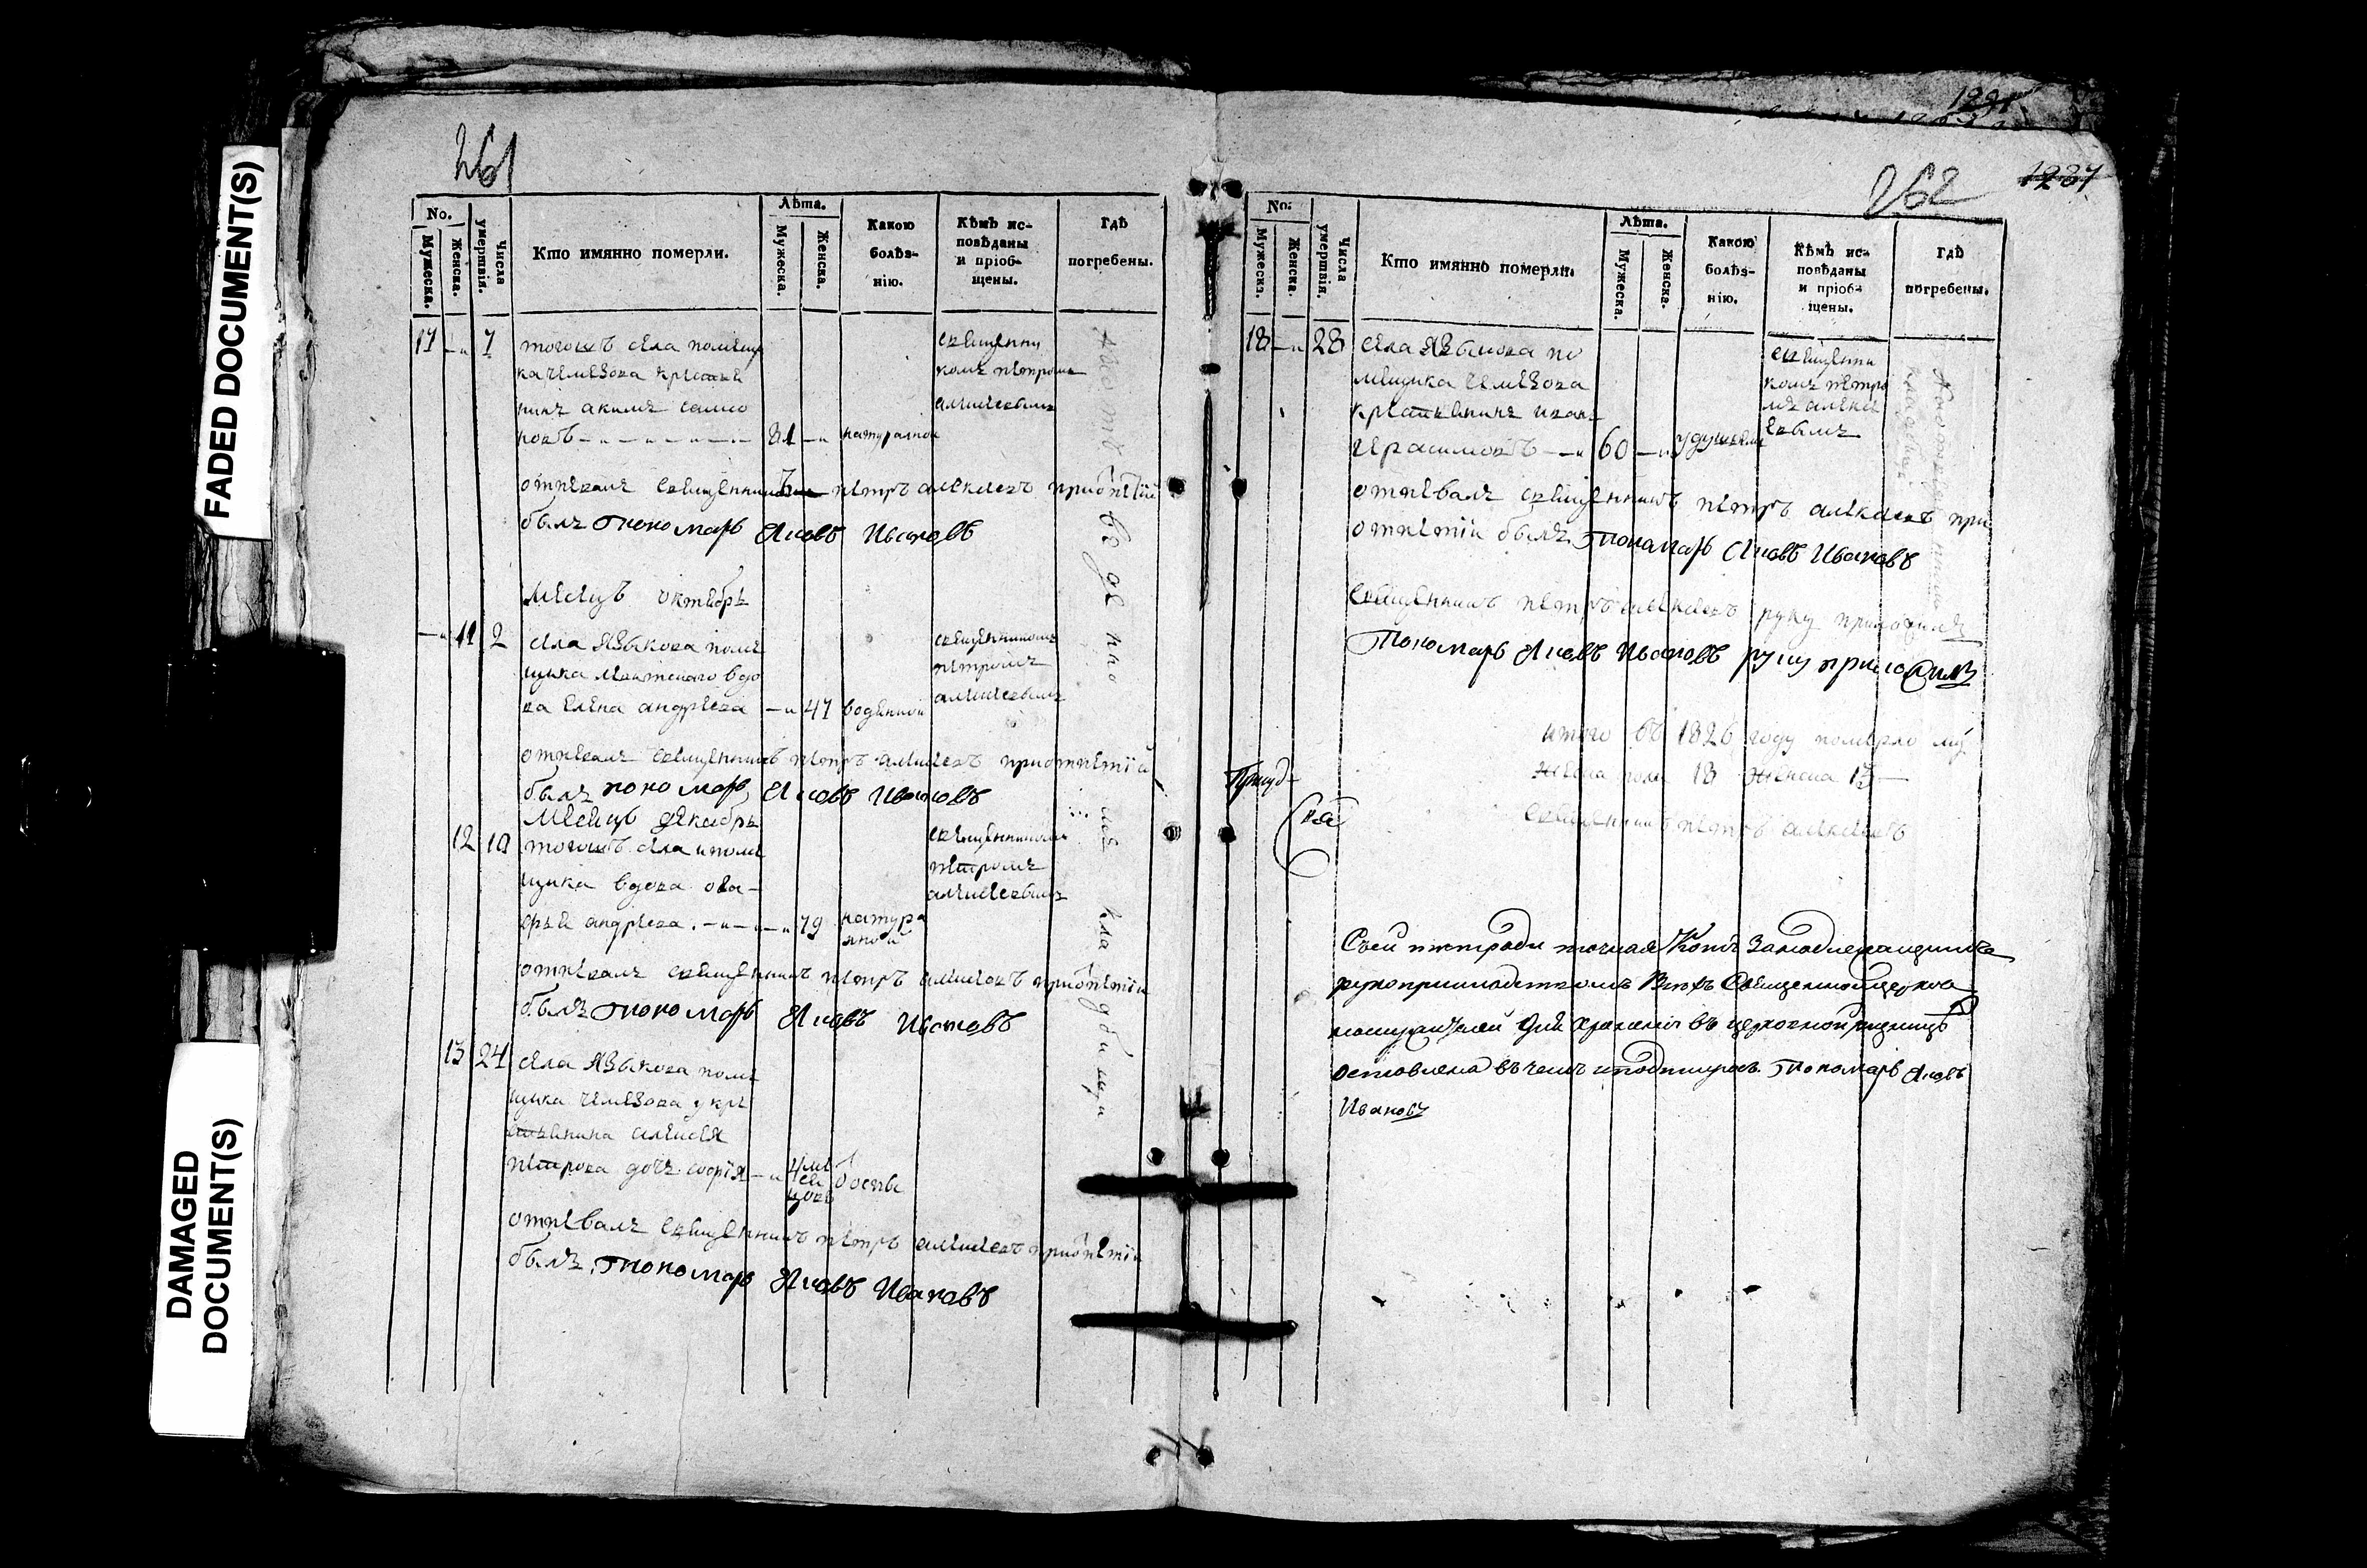 FADED DOCUMENT(S)
DAMAGED
DOCUMENT(S)
261
No.
Мужеска.
Женска.
Числа
умертвія.
Кто имянно померли.
Лѣта.
Мужеска.
Женска.
Какою
болѣз-
нію.
Кѣмъ ис-
повѣданы
и пріоб-
щены.
Гдѣ
погребены.
17 — 7 тогожъ села помѣщи
ка крестья
нинъ акимъ
81 — натуральной
священни
комъ петромъ
алексѣевымъ
отпевалъ священникъ петръ алексеевъ при отпетіи
былъ пономарь Яковъ Ивановъ
месецъ октебрь
— 11 2 села Языкова поме
щика вдо
ва елена андреева — 47 воденной
священникомъ
петромъ
алексеевымъ
отпевалъ священникъ петръ алексеевъ при отпетіи
былъ пономарь Яковъ Ивановъ
месецъ декабрь
12 10 тогожъ села и поме
щика вдова
андреева — 79 натура
лной
священникомъ
петромъ
алексеевымъ
отпевалъ священникъ петръ алексеевъ при отпетіи
былъ пономарь Яковъ Ивановъ
13 24 села Языкова поме
щика у кре
стьянина алексея
петрова дочь софія — 4 ме
се
цовъ
оспы
отпевалъ священникъ петръ алексеевъ при отпетіи
былъ пономарь Яковъ Ивановъ
кладбищи
1237
262
No:
Мужеска.
Женска.
Числа
умертвія.
Кто имянно померли.
Лѣта.
Мужеска.
Женска.
Какою
болѣз-
нію.
Кѣмъ ис-
повѣданы
и пріоб-
щены.
Гдѣ
погребены.
18 — 28 села Языкова по
мещика
крестьянинъ иван
герасимовъ — 60 — удушьемъ
священни
комъ петро
мъ алексе
евымъ
отпевалъ священникъ петръ алексеевъ при
отпетіи былъ Пономарь Яковъ Ивановъ
священникъ петръ алексеевъ руку приложилъ
Пономарь Яковъ Ивановъ руку приложилъ
итого въ 1826 году померло му
жеска пола 18 женска 13 —
священникъ петръ алексеевъ
Съей тетради точная Копія за
рукоприкладствомъ священно и церковно
служителей для храненія въ церковной ризницѣ
оставлена въ чемъ и подпишуюсь Пономарь Яковъ
Ивановъ